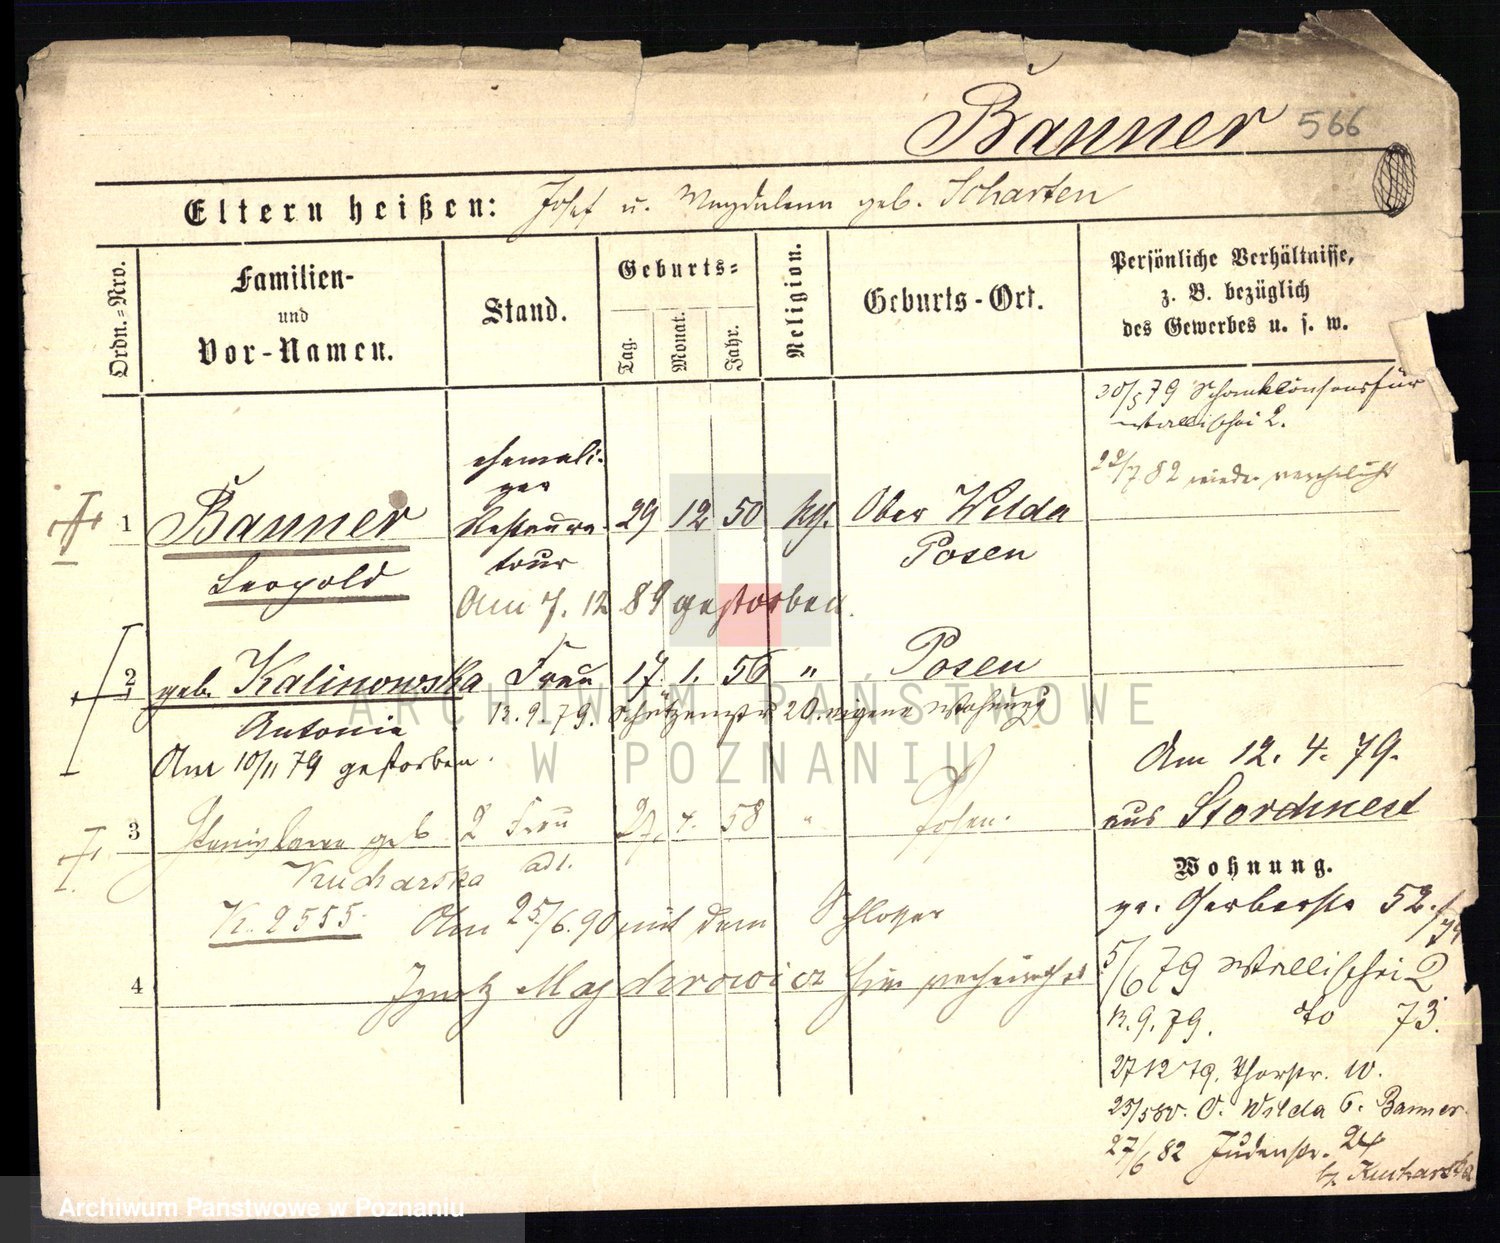 Banner 566
Eltern heißen: Josef u. Magdalena geb. Scharten
Ordn.=Nro.
Familien-
und
Vor-Namen.
Stand.
Geburts=
Tag.
Monat.
Jahr.
Religion.
Geburts-Ort.
Persönliche Verhältnisse,
z. B. bezüglich
des Gewerbes u. s. w.
30/5 79 Schankkonsens für
Wallischei 2.
22/7 82 wieder
1
Banner
Leopold
ehemali-
ger
Restaura-
teur
29 12 50 kth. Ober Wilda
Posen
Am 7. 12 89 gestorben.
2
geb. Kalinowska Frau 17. 1. 56 " Posen
Antonie
13. 9. 79. Schützenstr 20. eigene Wohnung
Am 10/11 79 gestorben.
Am 12. 4. 79.
aus Stordnest
3
Stanislawa geb 2 Frau 27. 4. 58 " Posen.
Kucharska adl.
K. 2555. Am 25/6.90 mit dem Schlosser
4
Ignatz Majderowicz hier verheirathet
Wohnung.
gr. Gerberstr 52.
5/6 79 Wallischei 2
13. 9. 79. do 73.
27 12 79. Thorstr. 10.
25/5 80. O. Wilda 6. Banner
27/6 82 Judenstr. 24
b/ Kucharska
ARCHIWUM PAŃSTWOWE
W POZNANIU
Archiwum Państwowe w Poznaniu